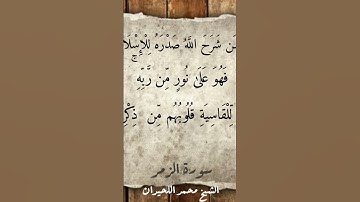 ـَن شَرَحَ اللَّهُ صَدْرَهُ لِلْإِسْلَا
فَهُوَ عَلَىٰ نُورٍ مِّن رَّبِّهِ ۚ
لِّلْقَاسِيَةِ قُلُوبُهُم مِّن ذِكْرِ
سورة الزمر
الشيخ محمد اللحيدان